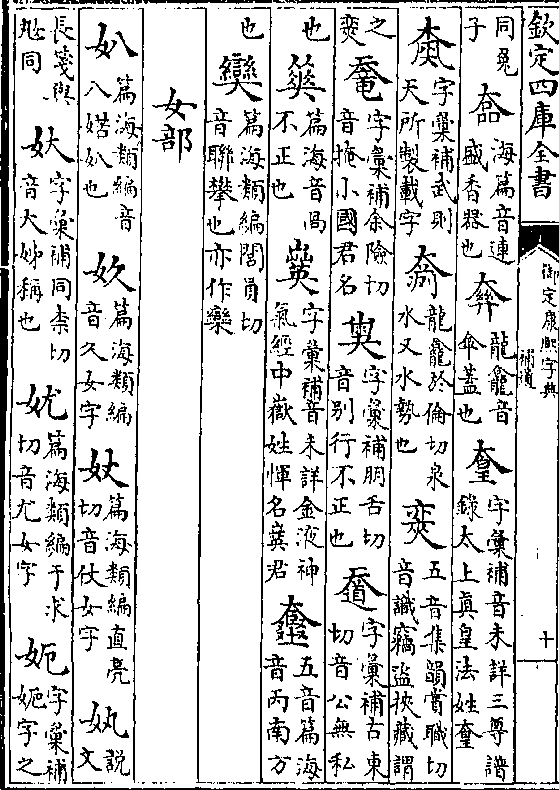 欽定四庫全書
御定康熙字典
補遺
十
同兔子 海篇音連盛香器也 龍龕音傘蓋也 字彙補音未詳三尊譜錄太上真皇法姓
字彙補武則天所製載字 龍龕於倫切泉水又水勢也 㚒 五音集韻賞職切音識竊盜挾藏謂
之㚒 字彙補余險切音掩小國君名 字彙補朋舌切音別行不正也 字彙補古東切音公無私
也 篇海音咼不正也 字彙補音未詳金液神氣經中嶽姓惲名君 五音篇海音丙南方
也 奱 篇海類編閭員切音聯攀也亦作
女部
篇海類編音八婼也 奺 篇海類編音久女字 篇海類編直亮切音仗女字 說文
長箋與同 字彙補同柰切音大姊稱也 篇海類編于求切音尤女字 字彙補字之